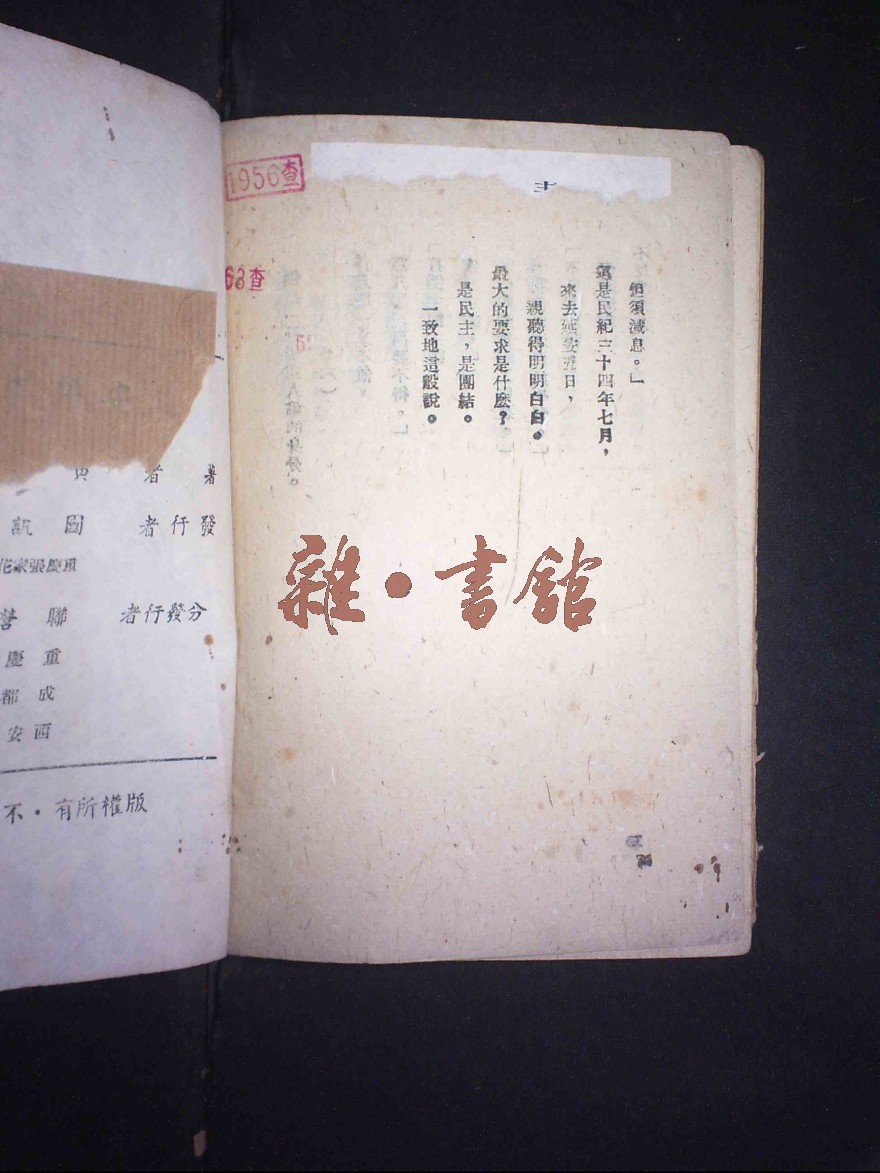 1956查
63查
但須減息。」
這是民紀三十四年七月，
來去延安五日，
親聽得明明白白。
最大的要求是什麼？
是民主，是團結。
一致地這般說。
著者
發行者 國訊
重慶張家花
分發行者 聯營
重慶
成都
西安
版權所有・不
雜・書館